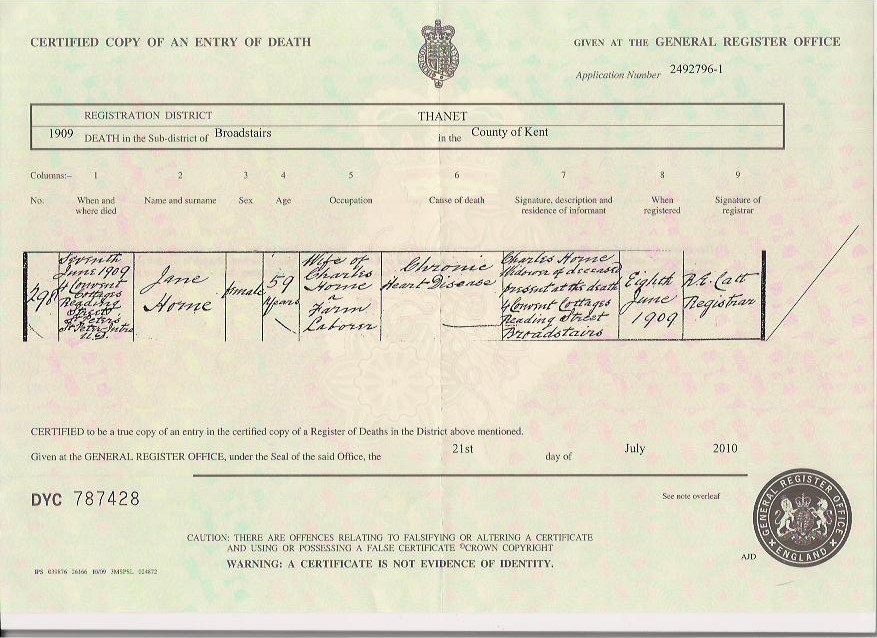 CERTIFIED COPY OF AN ENTRY OF DEATH
GIVEN AT THE GENERAL REGISTER OFFICE
Application Number 2492796-1
REGISTRATION DISTRICT THANET
1909 DEATH in the Sub-district of Broadstairs in the County of Kent
Columns:- 1 2 3 4 5 6 7 8 9
No. When and where died Name and surname Sex Age Occupation Cause of death Signature, description and residence of informant When registered Signature of registrar
298
Seventh
June 1909
4 Convent
Cottages
Reading
Street
St Peter's
St Peter Intra
U.D.
Jane
Horne
female
59
years
Wife of
Charles
Horne
a
Farm
Laborer
Chronic
Heart Disease
Charles Horne
Widower of deceased
present at the death
4 Convent Cottages
Reading Street
Broadstairs
Eighth
June
1909
R.E. Catt
Registrar
CERTIFIED to be a true copy of an entry in the certified copy of a Register of Deaths in the District above mentioned.
Given at the GENERAL REGISTER OFFICE, under the Seal of the said Office, the 21st day of July 2010
DYC 787428
See note overleaf
CAUTION: THERE ARE OFFENCES RELATING TO FALSIFYING OR ALTERING A CERTIFICATE
AND USING OR POSSESSING A FALSE CERTIFICATE ©CROWN COPYRIGHT
WARNING: A CERTIFICATE IS NOT EVIDENCE OF IDENTITY.
GENERAL REGISTER OFFICE
ENGLAND
AJD
IPS 039876 26166 10/09 3MSPSL 024872